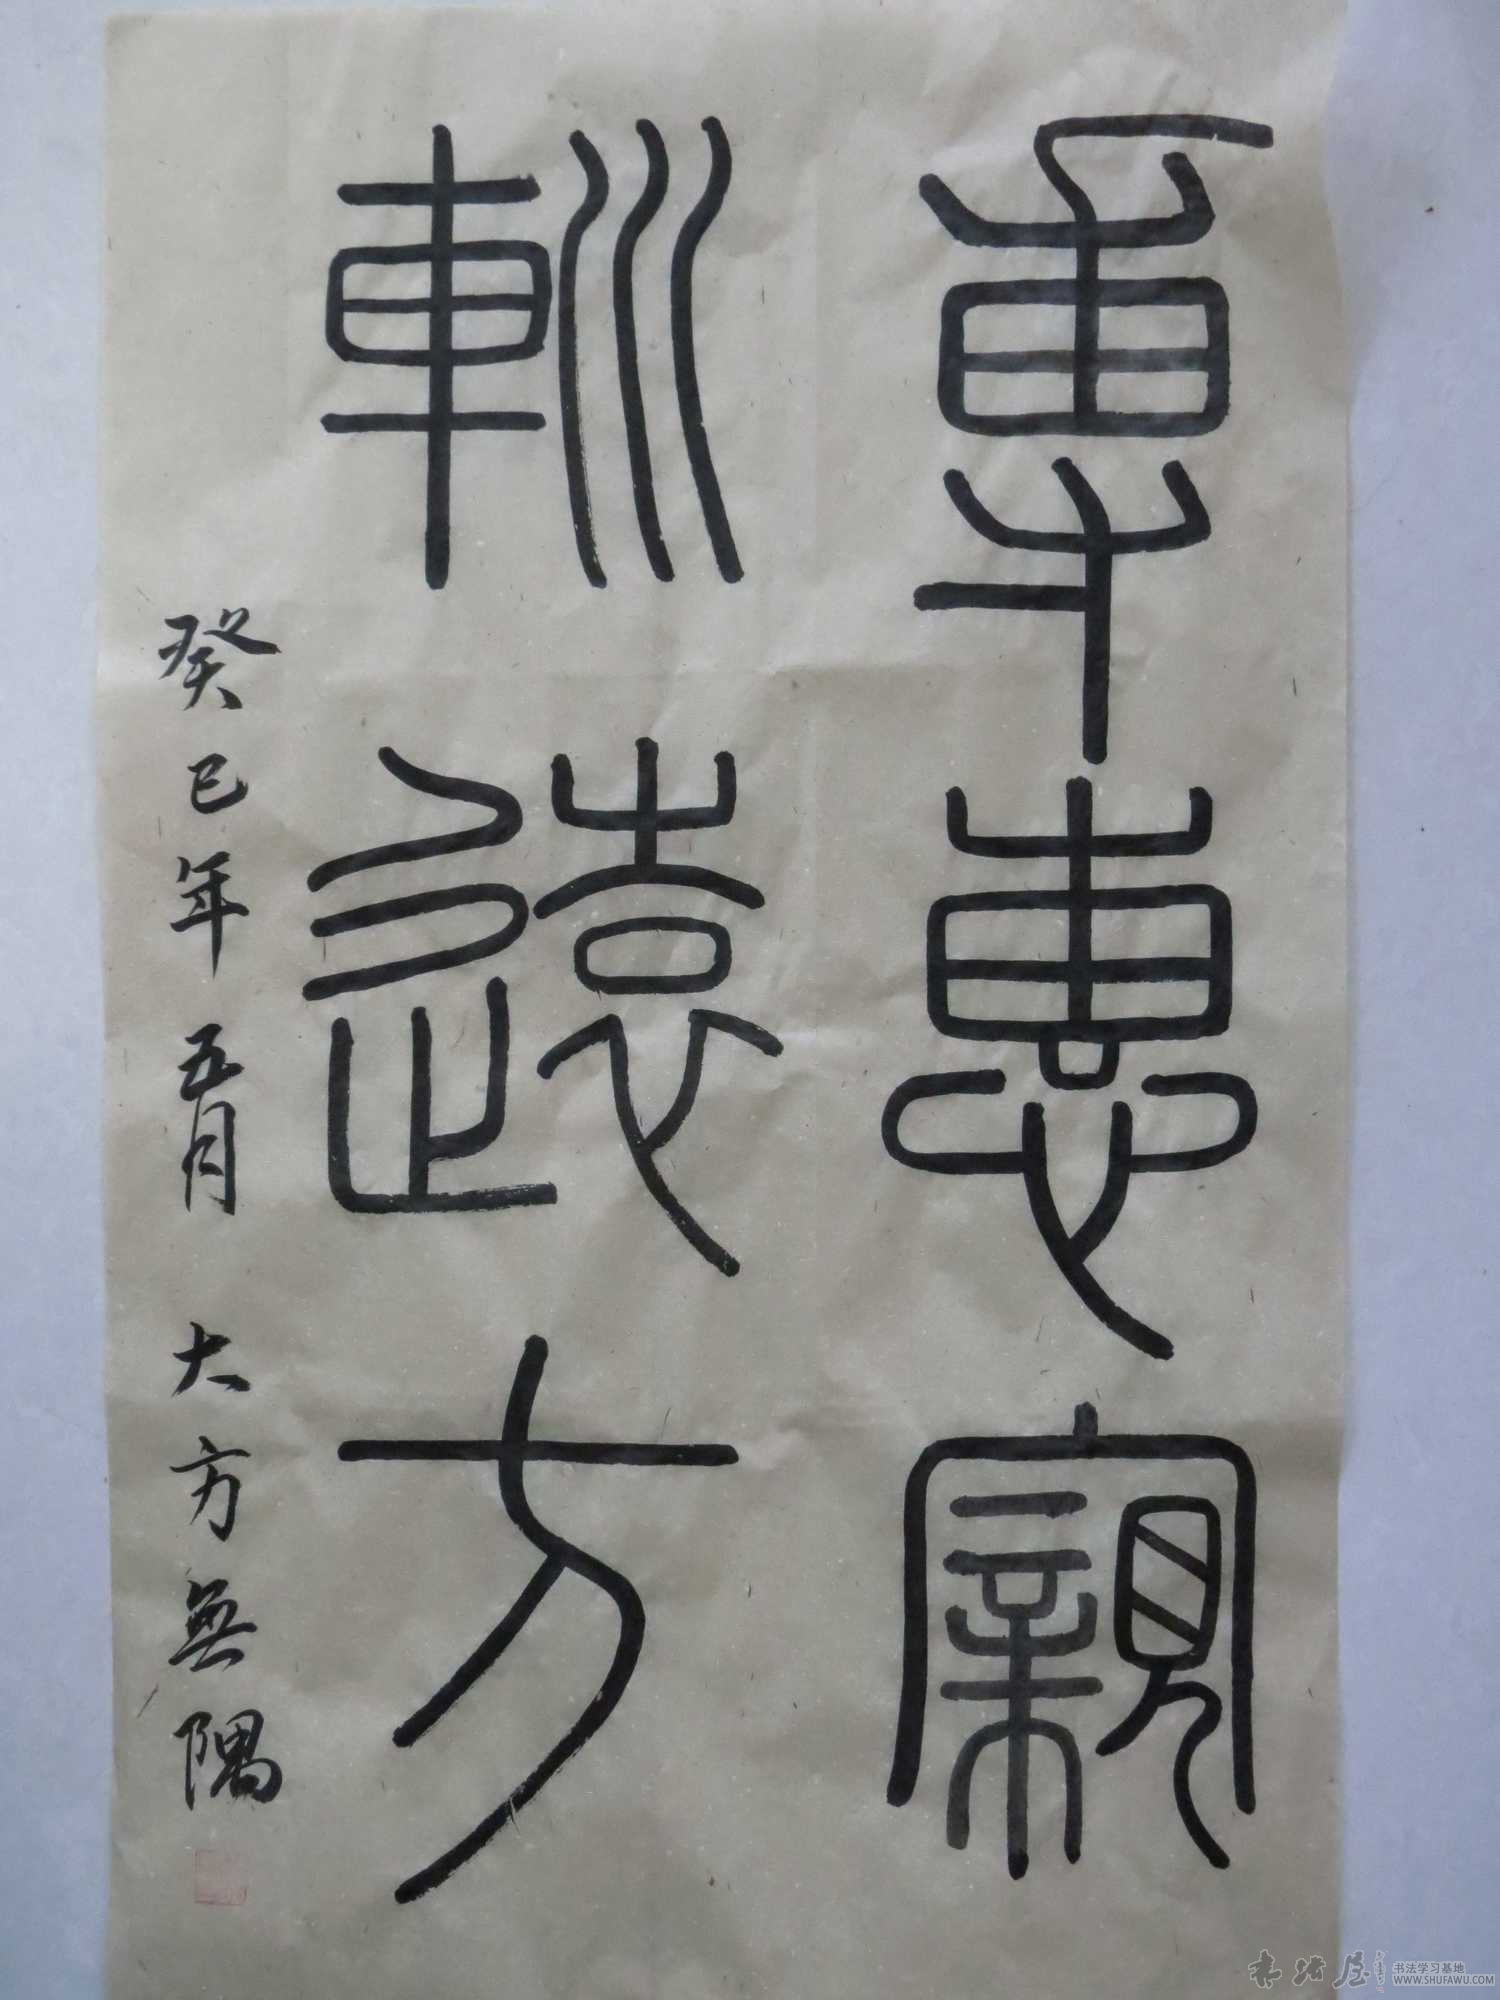 專惠寴
𨊠遠方
癸巳年五月 大方無隅
书法屋
书法学习基地
WWW.SHUFAWU.COM